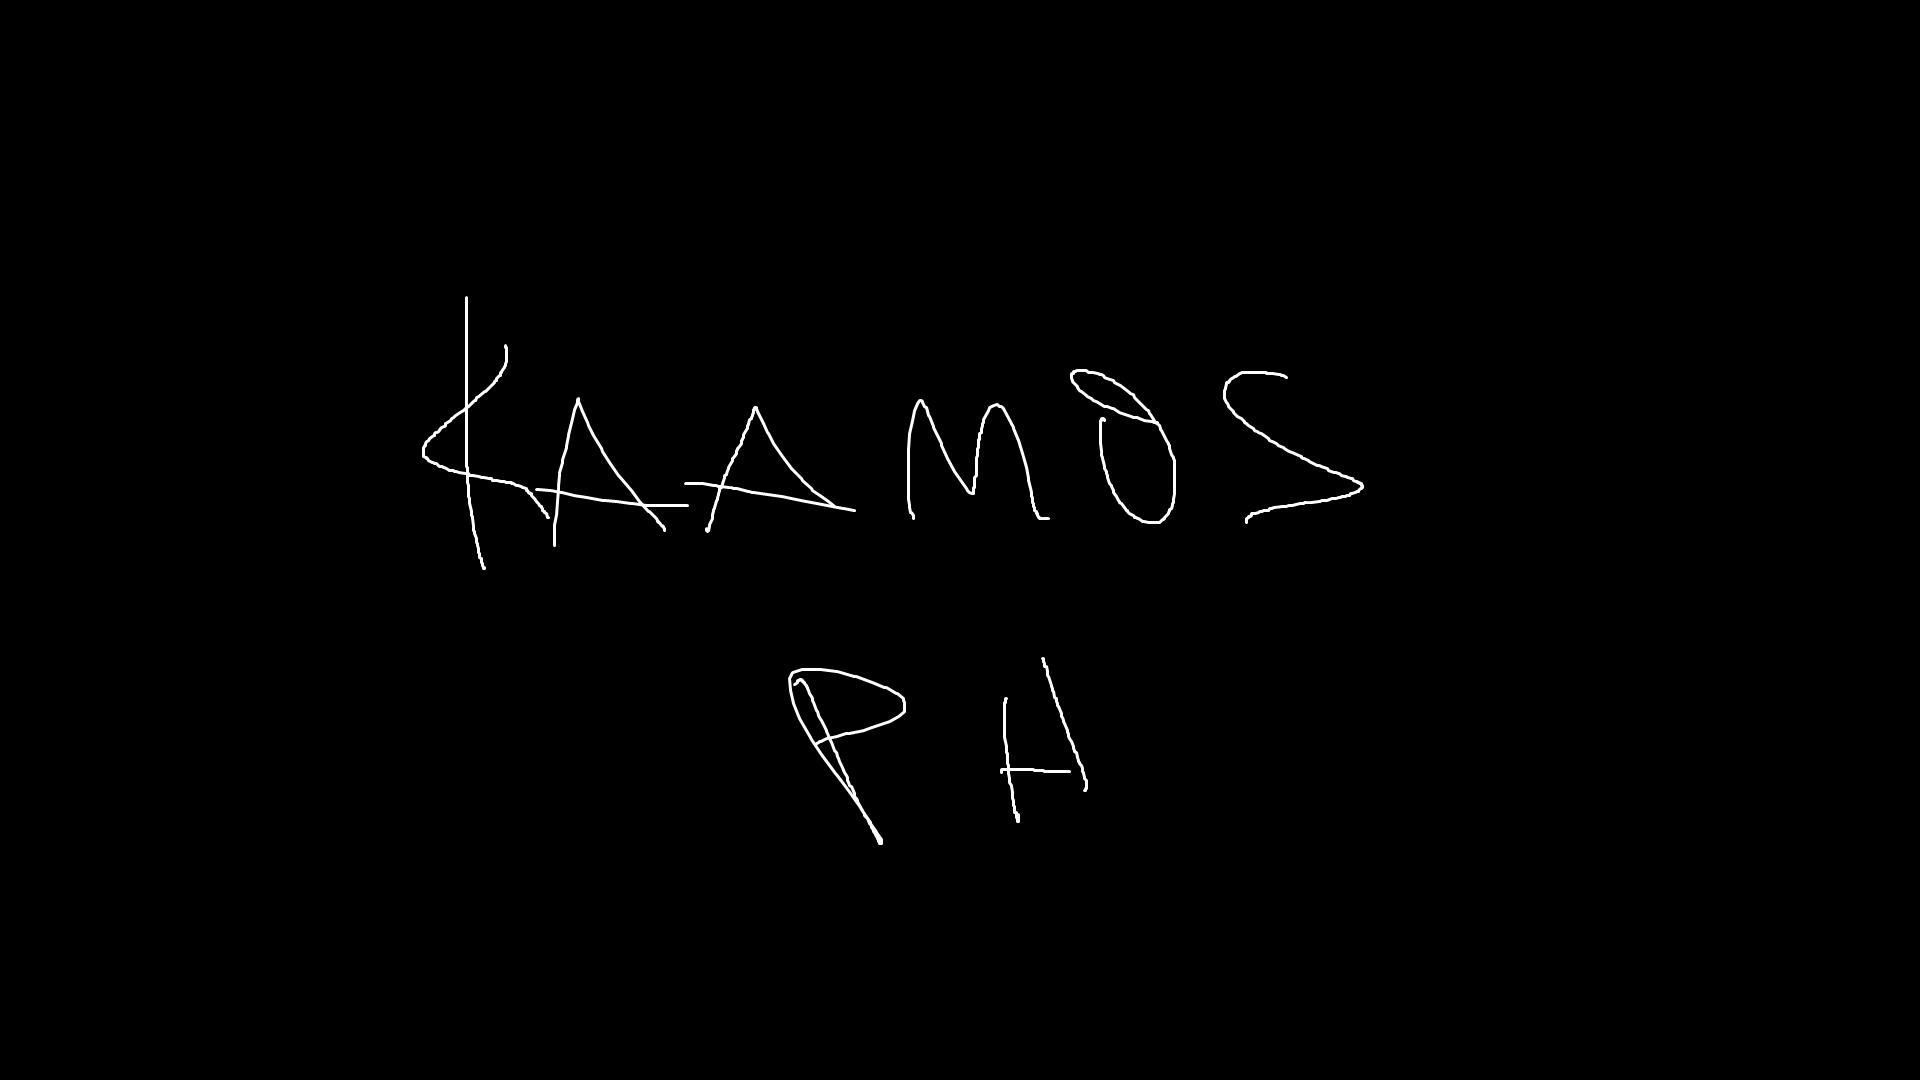 KAAMOS
PH